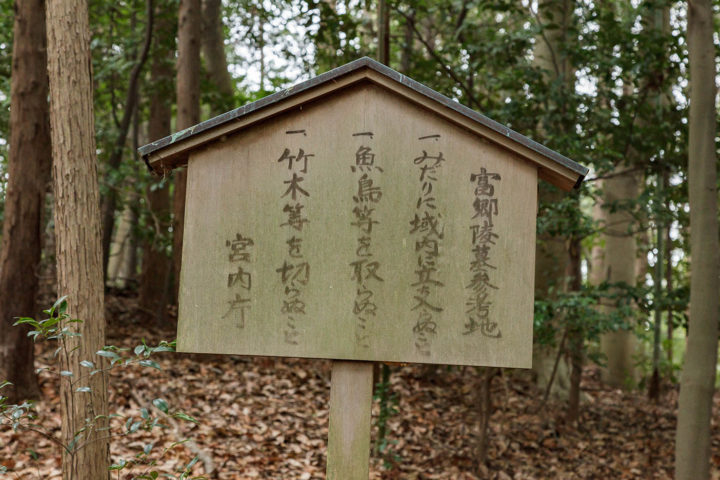 富郷陵墓参考地
一みだりに域内に立入らぬこと
一魚鳥等を取らぬこと
一竹木等を切らぬこと
宮内庁